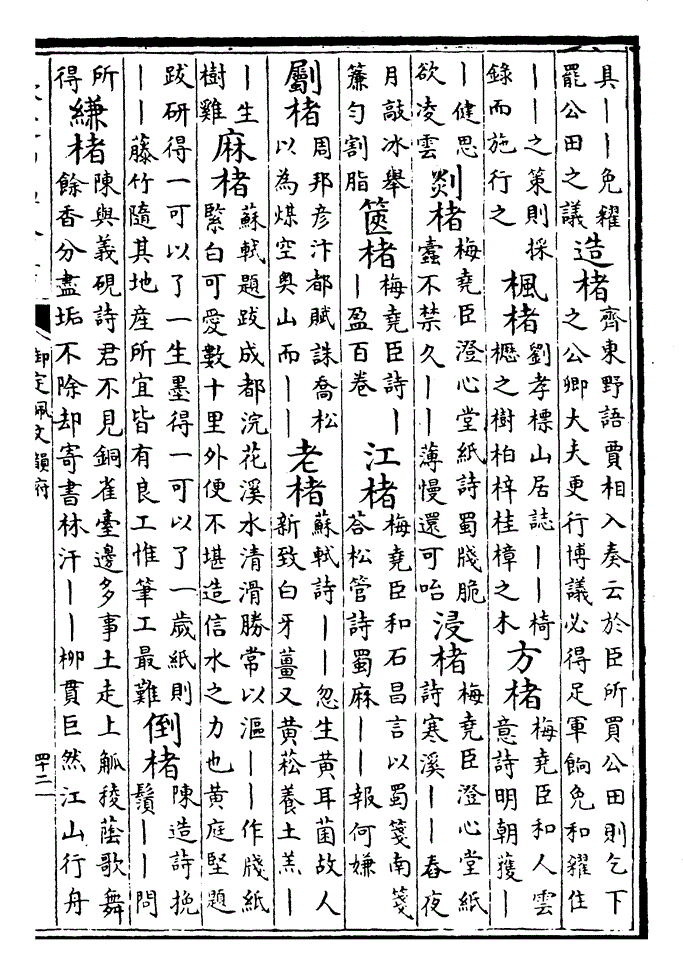 具——免糴
罷公田之議
造楮
齊東野語賈相入奏云於臣所買公田則乞下
之公卿大夫更行博議必得足軍餉免和糴住
——之策則採
錄而施行之
楓楮
劉孝標山居誌——椅
櫪之樹柏梓桂樟之木
方楮
梅堯臣和人雲
意詩明朝獲—
—健思
欲凌雲
剡楮
梅堯臣澄心堂紙詩蜀牋脆
蠹不禁久——薄慢還可咍
浸楮
梅堯臣澄心堂紙
詩寒溪——舂夜
月敲冰舉
簾勻割脂
篋楮
梅堯臣詩—
—盈百卷
江楮
梅堯臣和石昌言以蜀箋南箋
答松管詩蜀麻——報何嫌
劚楮
周邦彥汴都賦誅喬松
以為煤空奧山而——
老楮
蘇軾詩——忽生黃耳菌故人
新致白牙薑又黃菘養土羔—
—生
樹雞
麻楮
蘇軾題跋成都浣花溪水清滑勝常以漚——作牋紙
緊白可愛數十里外便不堪造信水之力也黃庭堅題
跋研得一可以了一生墨得一可以了一歲紙則
——藤竹隨其地產所宜皆有良工惟筆工最難
倒楮
陳造詩挽
鬚——問
所
得
縑楮
陳與義硯詩君不見銅雀臺邊多事土走上觚稜蔭歌舞
餘香分盡垢不除却寄書林汗——柳貫巨然江山行舟
御定佩文韻府